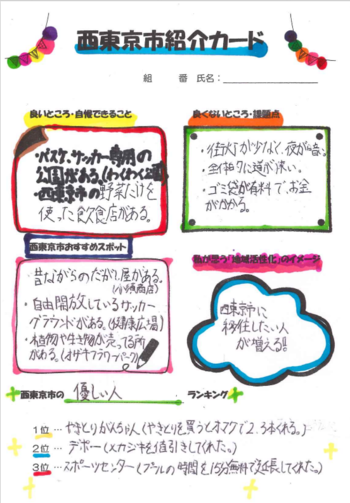 西東京市紹介カード
組 番 氏名:
良いところ・自慢できること
・バスケ、サッカー専用の
公園がある。(わくわく公園)
・西東京市の野菜だけを
使った飲食店がある。
良くないところ・課題点
・街灯が少なくて、夜が暗い。
・全体的に道が狭い。
・ゴミ袋が有料で、お金
がかかる。
西東京市おすすめスポット
昔ながらのだがし屋がある。
・自由開放しているサッカー
グラウンドがある。(健康広場)
・植物や生き物が売ってる所
がある。(オザキフラワーパーク)
私が思う「地域活性化」のイメージ
西東京市に
移住したい人
が増える!!
西東京市の 優しい人 ランキング
1位…やきとりかみちゃん(やきとりを買うとオマケで2,3本くれる。)
2位…デポー(メカジキを値引きしてくれた。)
3位…スポーツセンター(プールの時間を15分無料で延長してくれた。)